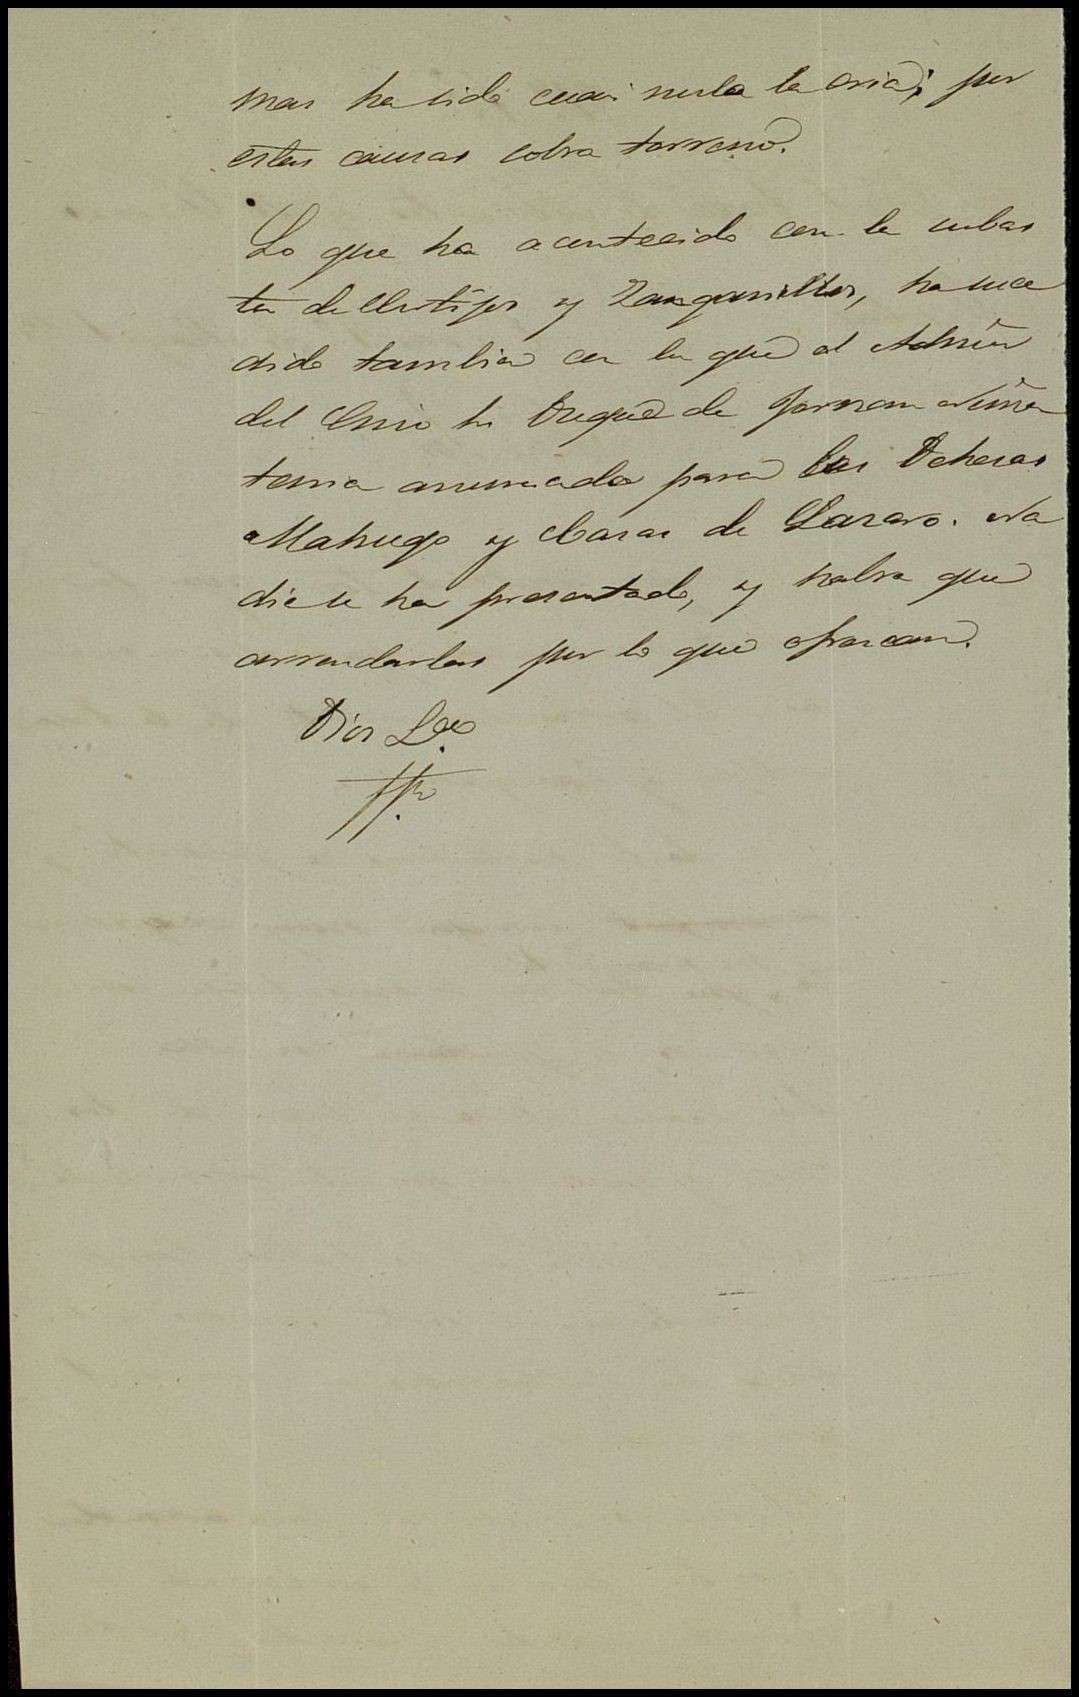 mas ha sido cuasi nula la cria; por
estas causas sobra terreno.
Lo que ha acontecido con la subas
ta de Clotijos y Zanganillos, ha suce
dido tambien con la que el Admor
del Exmo Sr Duque de Fernan Nuñez
tenia anunciada para las Dehesas
Matuego y Casas de Lazaro. Na
die se ha presentado, y habra que
arrendarlas por lo que ofrezcan.
Dios &a